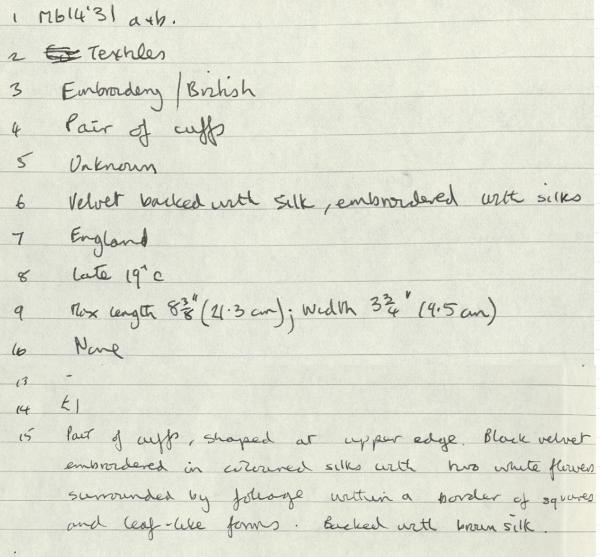 1 M614'31 a+b.
2 Textiles
3 Embroidery / British
4 Pair of cuffs
5 Unknown
6 Velvet backed with silk, embroidered with silks
7 England
8 Late 19^c
9 Max length 8 3/8" (21.3 cm); width 3 3/4" (9.5 cm)
10 None
13 -
14 £1
15 Pair of cuffs, shaped at upper edge. Black velvet
embroidered in coloured silks with two white flowers
surrounded by foliage within a border of squares
and leaf-like forms. Backed with brown silk.